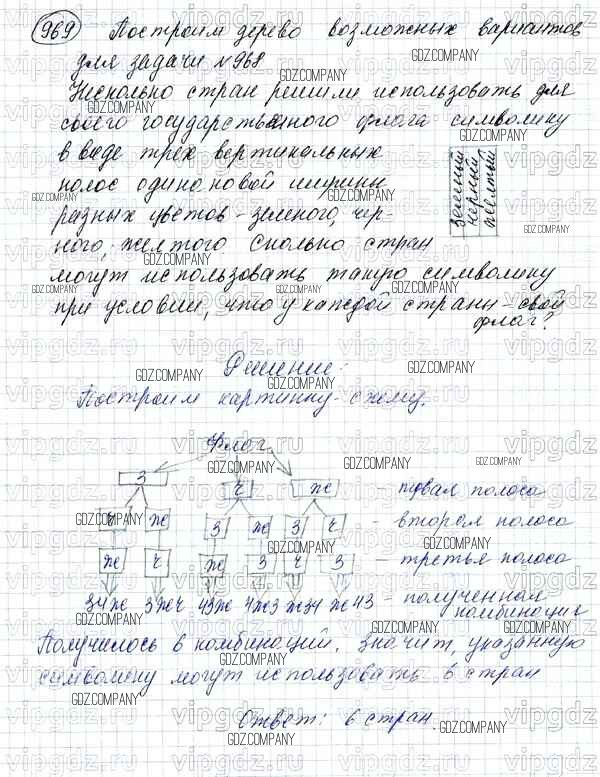 969 Построим дерево возможных вариантов
для задачи №968
Несколько стран решили использовать для
своего государственного флага символику
в виде трех вертикальных
полос одинаковой ширины
разных цветов - зеленого, чёр-
ного, желтого Сколько стран
могут использовать такую символику
при условии, что у каждой страны свой
флаг?
зеленый
черный
желтый
Решение:
Построим картинку-схему.
Флаг
З Ч Ж - первая полоса
Ч Ж З Ж З Ч - вторая полоса
Ж Ч Ж З Ч З - третья полоса
ЗЧЖ ЗЖЧ ЧЗЖ ЧЖЗ ЖЗЧ ЖЧЗ - полученная
комбинация
Получилось 6 комбинаций. Значит, указанную
символику могут использовать 6 стран
Ответ: 6 стран.
GDZ.COMPANY
vipgdz.ru